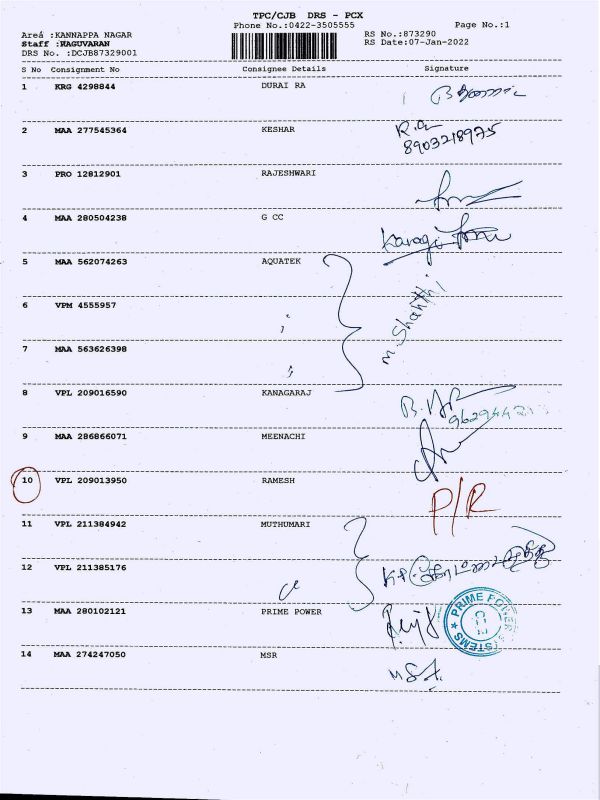 TPC/CJB DRS - PCX
Phone No.:0422-3505555 Page No.:1
Area :KANNAPPA NAGAR RS No.:873290
Staff :NAGUVARAN RS Date:07-Jan-2022
DRS No. :DCJB87329001
S No Consignment No Consignee Details Signature
1 KRG 4298844 DURAI RA
2 MAA 277545364 KESHAR
8903218975
3 PRO 12812901 RAJESHWARI
4 MAA 280504238 G CC
5 MAA 562074263 AQUATEK
6 VPM 4555957
M. Shanthi
7 MAA 563626398
8 VPL 209016590 KANAGARAJ
9 MAA 286866071 MEENACHI
10 VPL 209013950 RAMESH P/R
11 VPL 211384942 MUTHUMARI
12 VPL 211385176
13 MAA 280102121 PRIME POWER
PRIME POWER SYSTEMS
14 MAA 274247050 MSR